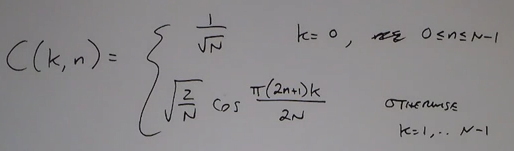 C(k,n) = { 1/√N k=0, 0≤n≤N-1
√(2/N) cos π(2n+1)k/2N OTHERWISE
k=1,.. N-1